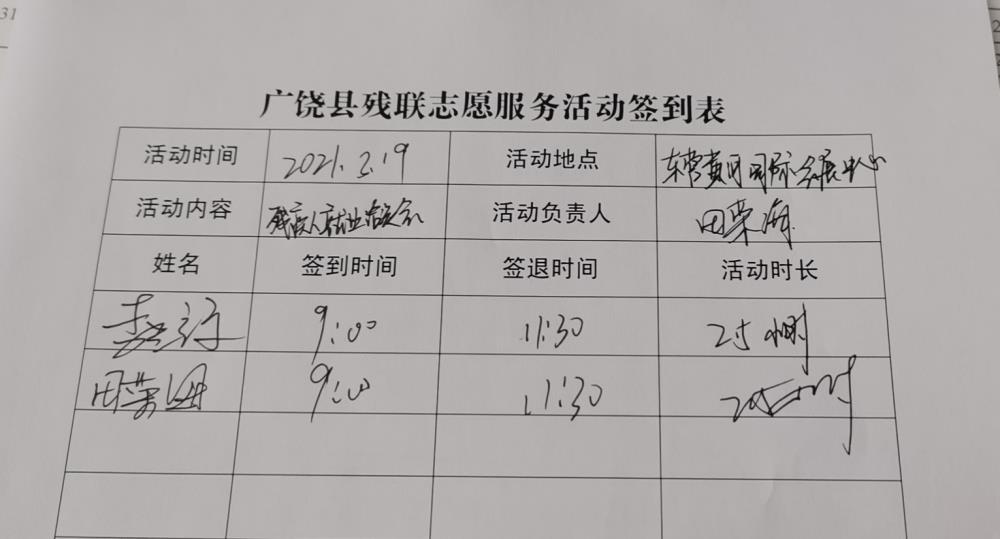 31
广饶县残联志愿服务活动签到表
活动时间 2021.3.19 活动地点 东营黄河国际会展中心
活动内容 残疾人就业洽谈会 活动负责人 田荣海
姓名 签到时间 签退时间 活动时长
9:00 11:30 2.5小时
田荣 9:00 11:30 2.5小时